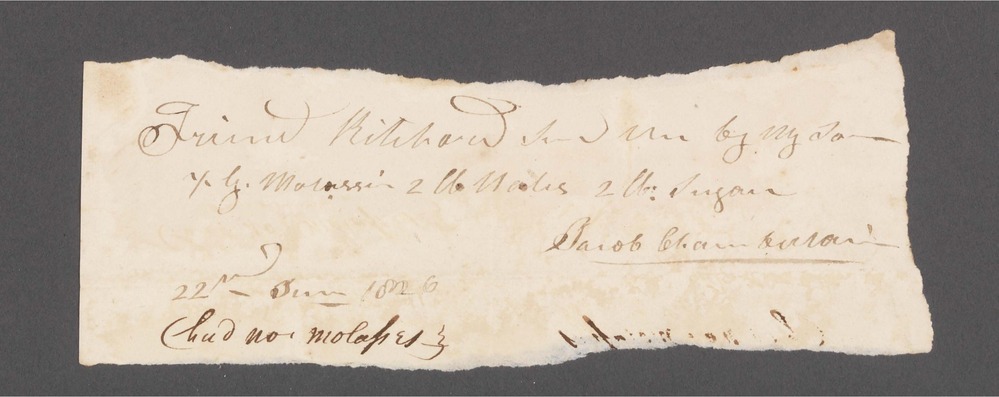 Friend Ritchard Send Me by My Son
1/2 g. Molassis 2 lb Nales 2 lb: Sugar
Jacob Chamberlain
22nd June 1826
(had no molasses)